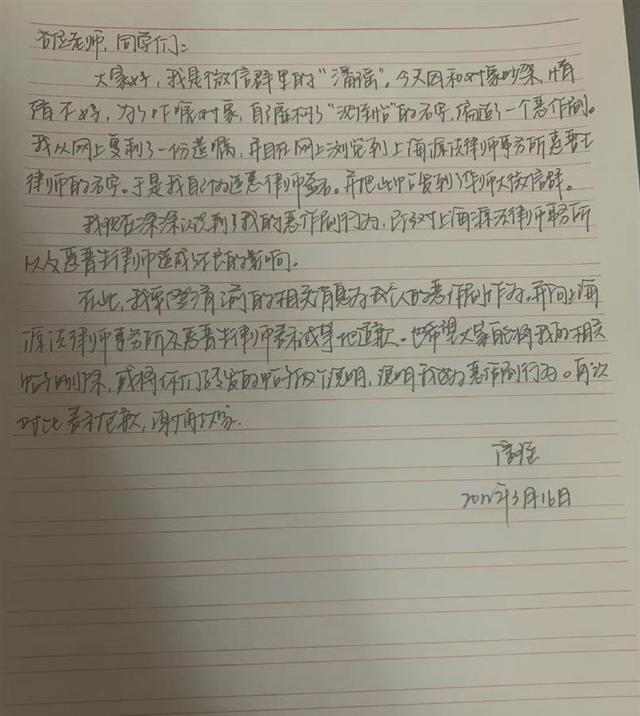 各位老师,同学们:
大家好,我是微信群里的“潘瑶”。今天因和对象吵架,情
绪不好,为了吓唬对象,自己杜撰了“”的名字,编造了一个恶作剧。
我从网上复制了一份遗嘱,并且在网上浏览到上海源法律师事务所惠普士
律师的名字。于是我自行伪造惠律师签名。并把此帖发到了华师大微信群。
我现在深深认识到了我的恶作剧行为,已经对上海源法律师事务所
以及惠普士律师造成不良的影响。
在此,我郑重澄清之前的相关消息为我个人的恶作剧行为,并向上海
源法律师事务所及惠普士律师表示诚挚地道歉。也希望大家能将我的相关
帖子删除,或将你们转发的帖子做个说明,说明我这为恶作剧行为。再次
对此表示抱歉,谢谢大家.
潘瑶
2022年3月16日